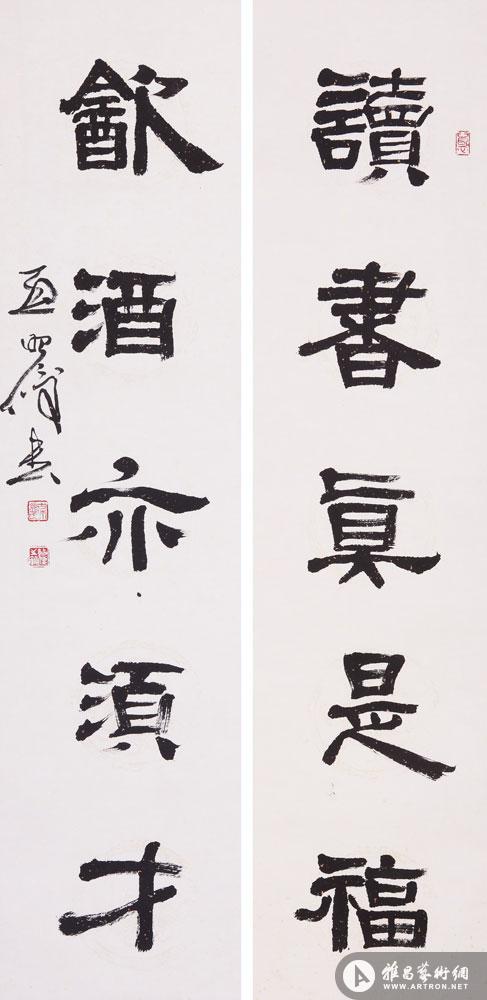 讀書真是福
歙酒亦須才
孟昭俊書
雅昌藝術網
WWW.ARTRON.NET